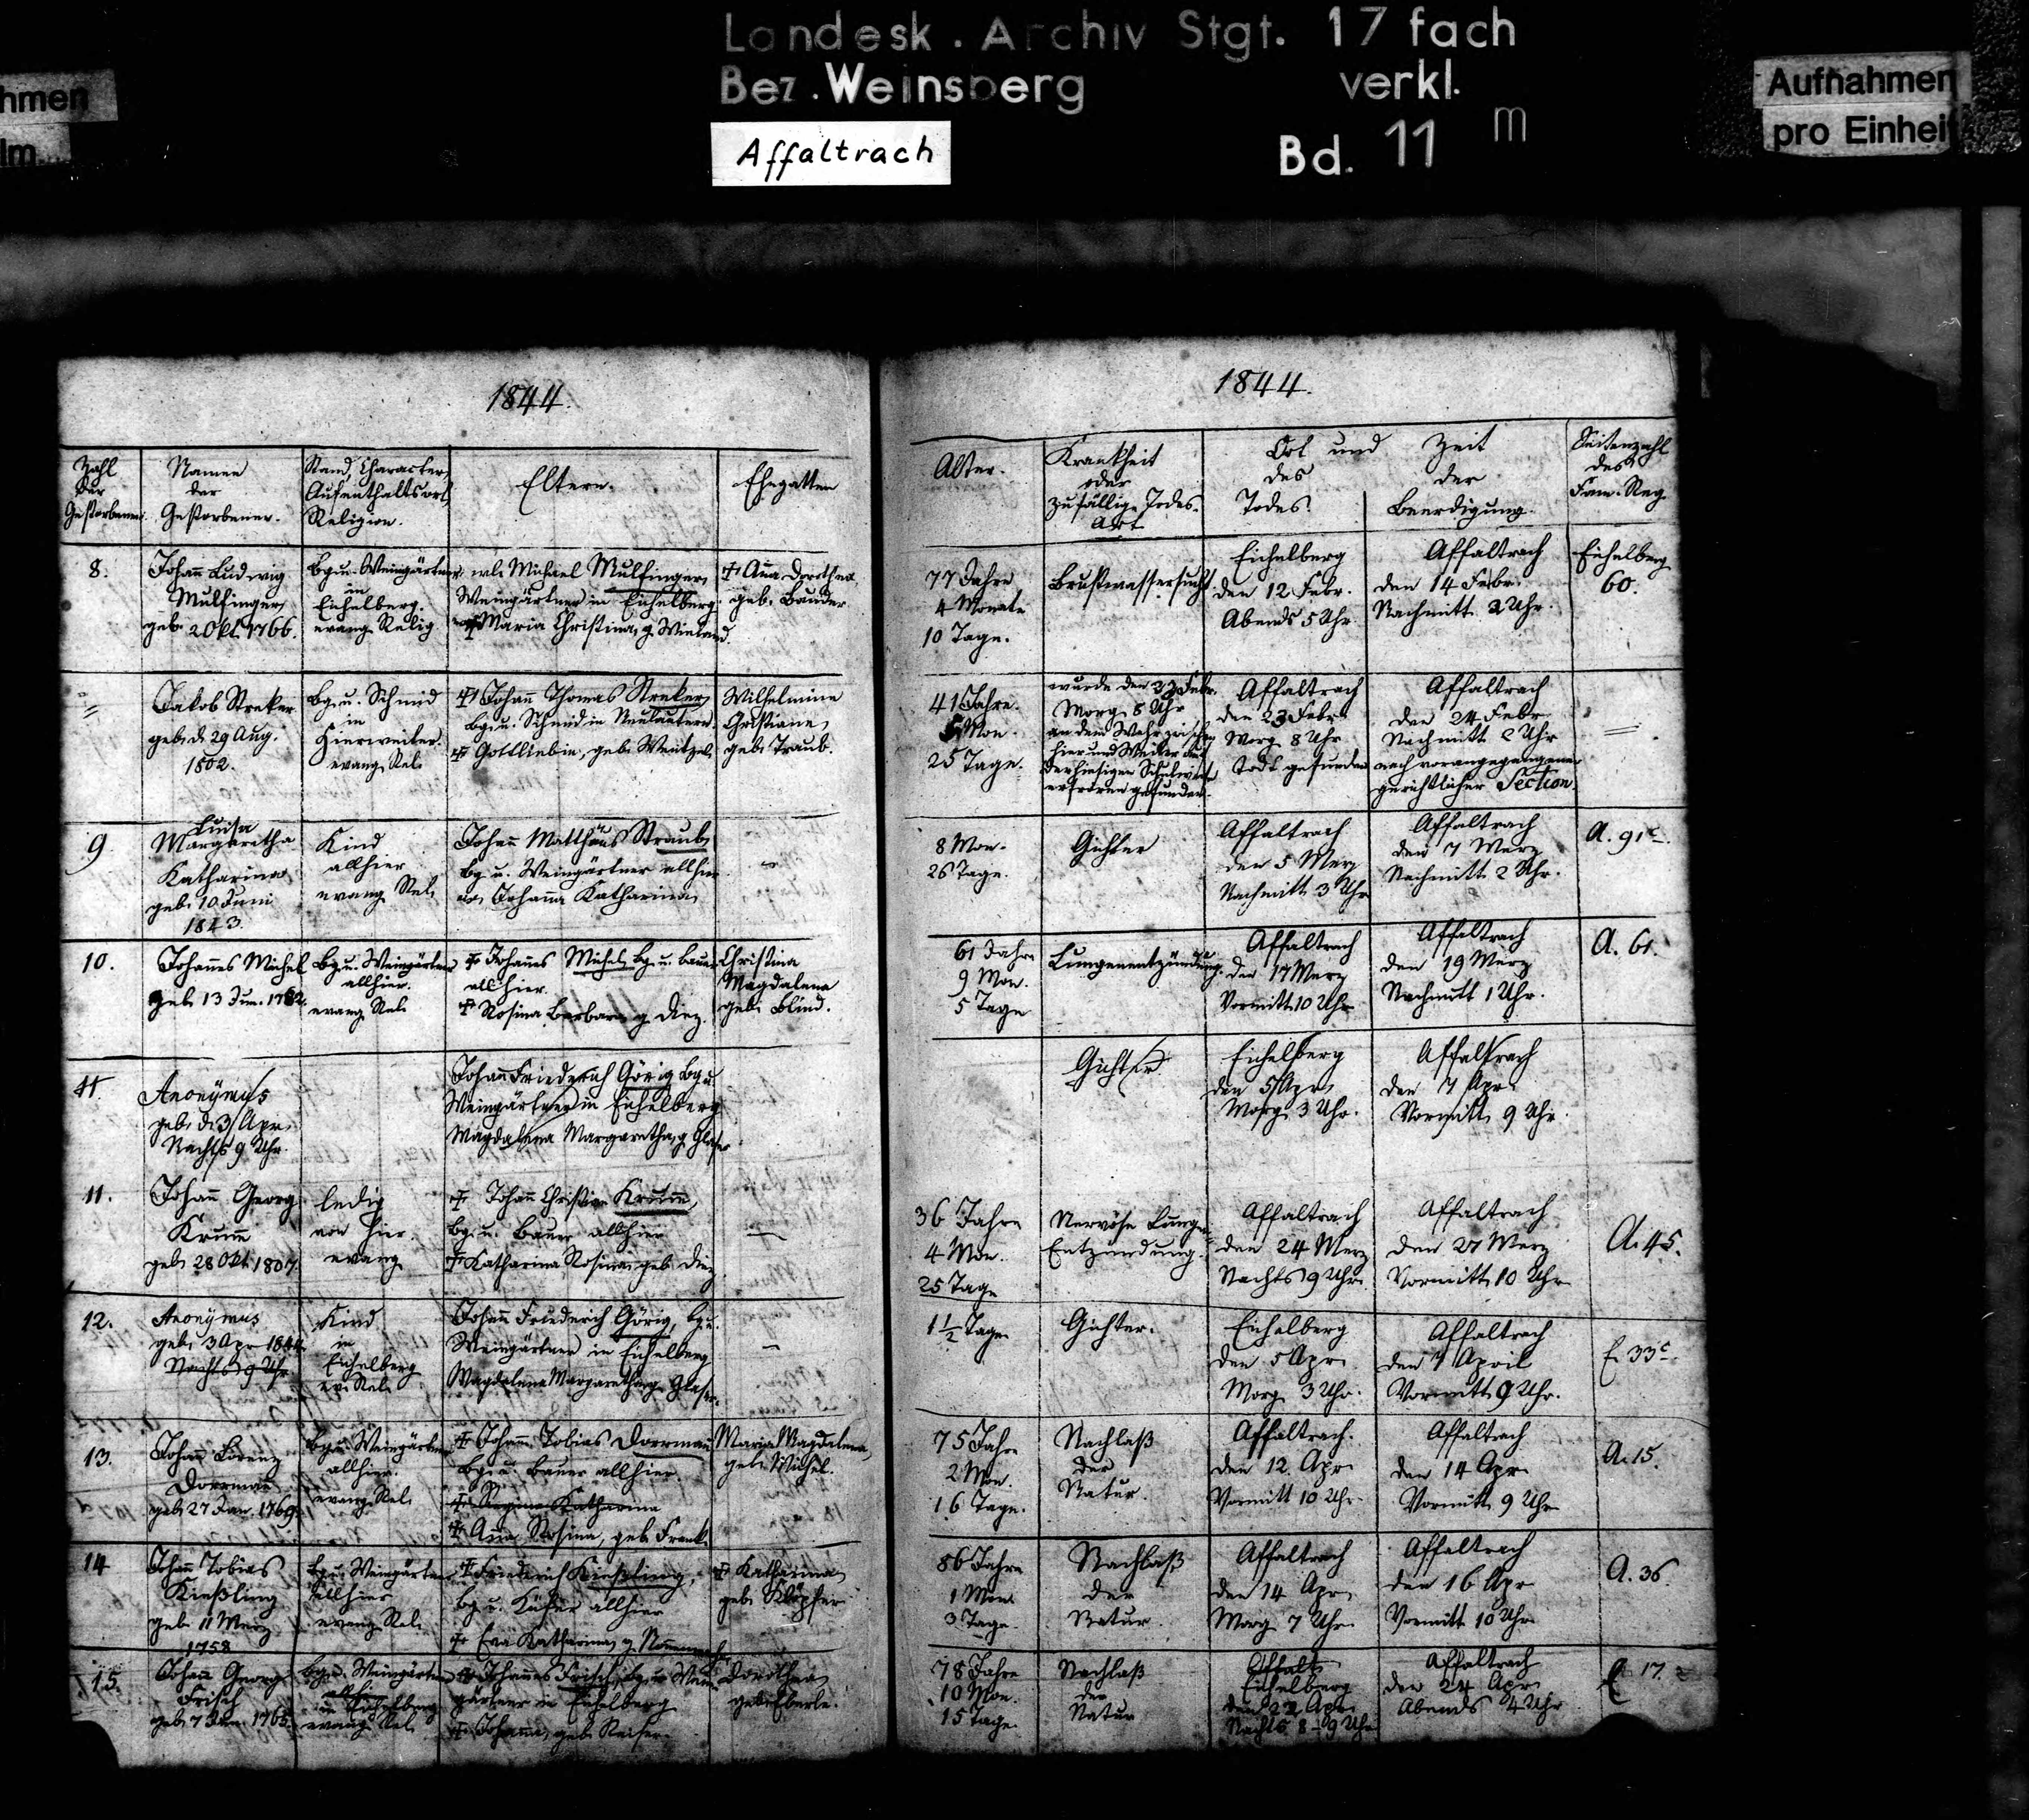 Landesk. Archiv Stgt. 17 fach
Bez. Weinsberg verkl.
Affaltrach
Bd. 11 m
hmen
lm
Aufnahmen
pro Einheit
1844.
Zahl
der
Gestorbenen.
Namen
der
Gestorbener.
Stand, Character,
Aufenthaltsort,
Religion.
Eltern.
Ehegatten
8.
Johann Ludwig
Mulfinger
geb. 2 Okt. 1766.
Bg. u. Weingärtner
in
Eichelberg.
evang. Relig
Michael Mulfinger,
Weingärtner in Eichelberg
Maria Christina, g. Wieland
† Anna Dorothea
geb. Bauder
Jakob Streker
geb. d. 29 Aug.
1802.
Bg. u. Schmid
in
Hierweiler.
evang. Rel.
† Johann Thomas Streker,
Bg. u. Schmid in Neulautern.
† Gottliebin, geb. Wentzel
Wilhelmine
Christiane,
geb. Traub.
9
Luisa
Margaretha
Katharina
geb. 10 Juni
1843.
Kind
allhier
evang. Rel.
Johann Matthäus Straub,
Bg. u. Weingärtner allhier
Johanna Katharina
10.
Johannes Michel
geb. 13 Jun. 1782.
Bg. u. Weingärtner
allhier.
evang. Rel.
† Johannes Michel, Bg. u. Bauer
allhier.
† Rosina Barbara g. Diez.
Christina
Magdalena
geb. Blind.
11.
Anonÿmus
geb. d. 3 Apr.
Nachts 9 Uhr.
Johann Friederich Görig Bg. u.
Weingärtner in Eichelberg
Magdalena Margaretha, g. Glaser
11.
Johann Georg
Krumm
geb. 28 Okt. 1807.
ledig
von hier.
evang.
† Johann Christian Krumm,
Bg. u. Bauer allhier
† Katharina Rosina, geb. Diez.
12.
Anonÿmus
geb. 3 Apr. 1844.
Nachts 9 Uhr
Kind
in
Eichelberg
ev. Rel.
Johann Friederich Görig, Bg. u.
Weingärtner in Eichelberg
Magdalena Margaretha, g. Glaser.
13.
Johann Lorenz
Dorrmann
geb. 27 Jan. 1769.
Bg. u. Weingärtner
allhier.
evang. Rel.
† Johann Tobias Dorrmann
Bg. u. Bauer allhier.
† Regina Katharina
† Anna Rosina, geb. Frank.
Maria Magdalena,
geb. Michel.
14
Johann Tobias
Kießling
geb. 11 Merz
1758
Bg. u. Weingärtner
allhier
evang. Rel.
† Friederich Kießling,
Bg. u. Küfer allhier
† Eva Katharina, g.
† Katharina,
geb. Klöpfer
15.
Johann Georg
Frisch
geb. 7 Jun. 1765.
Bg. u. Weingärtner
allhier
in Eichelberg
evang. Rel.
† Johannes Frisch, Bg. u. Wein-
gärtner in Eichelberg
† Johanna, geb. Kaiser.
Dorothea,
geb. Eberle.
1844.
Alter.
Krankheit
oder
zufällige Todes-
Art
Ort und Zeit
des der
Todes. Beerdigung.
Seitenzahl
des
Fam. Reg.
77 Jahre
4 Monate
10 Tage.
Brustwassersucht.
Eichelberg
den 12 Febr.
Abends 5 Uhr
Affaltrach
den 14 Febr.
Nachmitt. 2 Uhr.
Eichelberg
60.
41 Jahre.
5 Mon.
25 Tage.
wurde den 23 Febr.
Morg. 8 Uhr
an dem Wehr zwischen
hier und Weiler auf
der hiesigen
erfroren gefunden.
Affaltrach
den 23 Febr.
Morg. 8 Uhr
todt gefunden
Affaltrach
den 24 Febr.
Nachmitt. 2 Uhr
nach vorangegangener
gerichtlicher Section.
8 Mon.
26 Tage.
Gichter
Affaltrach
den 5 Merz
Nachmitt. 3 Uhr
Affaltrach
den 7 Merz
Nachmitt. 2 Uhr.
A. 91c.
61 Jahre
9 Mon.
5 Tage
Lungenentzündung.
Affaltrach
den 17 Merz
Vormitt. 10 Uhr
Affaltrach
den 19 Merz
Nachmitt 1 Uhr.
A. 61.
Gichter
Eichelberg
den 5 Apr.
Morg. 3 Uhr.
Affaltrach
den 7 Apr.
Vormitt. 9 Uhr.
36 Jahre
4 Mon.
25 Tage
Nervöse Lungen-
Entzündung.
Affaltrach
den 24 Merz
Nachts 9 Uhr.
Affaltrach
den 27 Merz
Vormitt. 10 Uhr
A. 45.
1 1/2 Tage
Gichter.
Eichelberg
den 5 Apr.
Morg. 3 Uhr.
Affaltrach
den 7 April
Vormitt. 9 Uhr.
E. 33c.
75 Jahre
2 Mon.
16 Tage.
Nachlaß
der
Natur.
Affaltrach.
den 12. Apr.
Vormitt 10 Uhr.
Affaltrach
den 14 Apr.
Vormitt. 9 Uhr
A. 15.
86 Jahre
1 Mon.
3 Tage.
Nachlaß
der
Natur.
Affaltrach
den 14 Apr.
Morg. 7 Uhr.
Affaltrach
den 16 Apr
Vormitt 10 Uhr.
A. 36.
78 Jahre
10 Mon.
15 Tage.
Nachlaß
der
Natur
Affalt
Eichelberg
den 22 Apr.
Nachts 8-9 Uhr
Affaltrach
den 24 Apr.
Abends 4 Uhr
E 17.